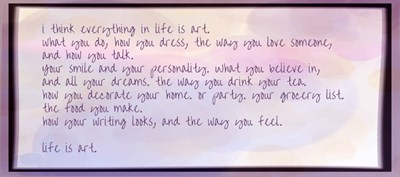 i think everything in life is art.
what you do, how you dress, the way you love someone,
and how you talk.
your smile and your personality. what you believe in,
and all your dreams. the way you drink your tea.
how you decorate your home. or party. your grocery list.
the food you make.
how your writing looks, and the way you feel.
life is art.